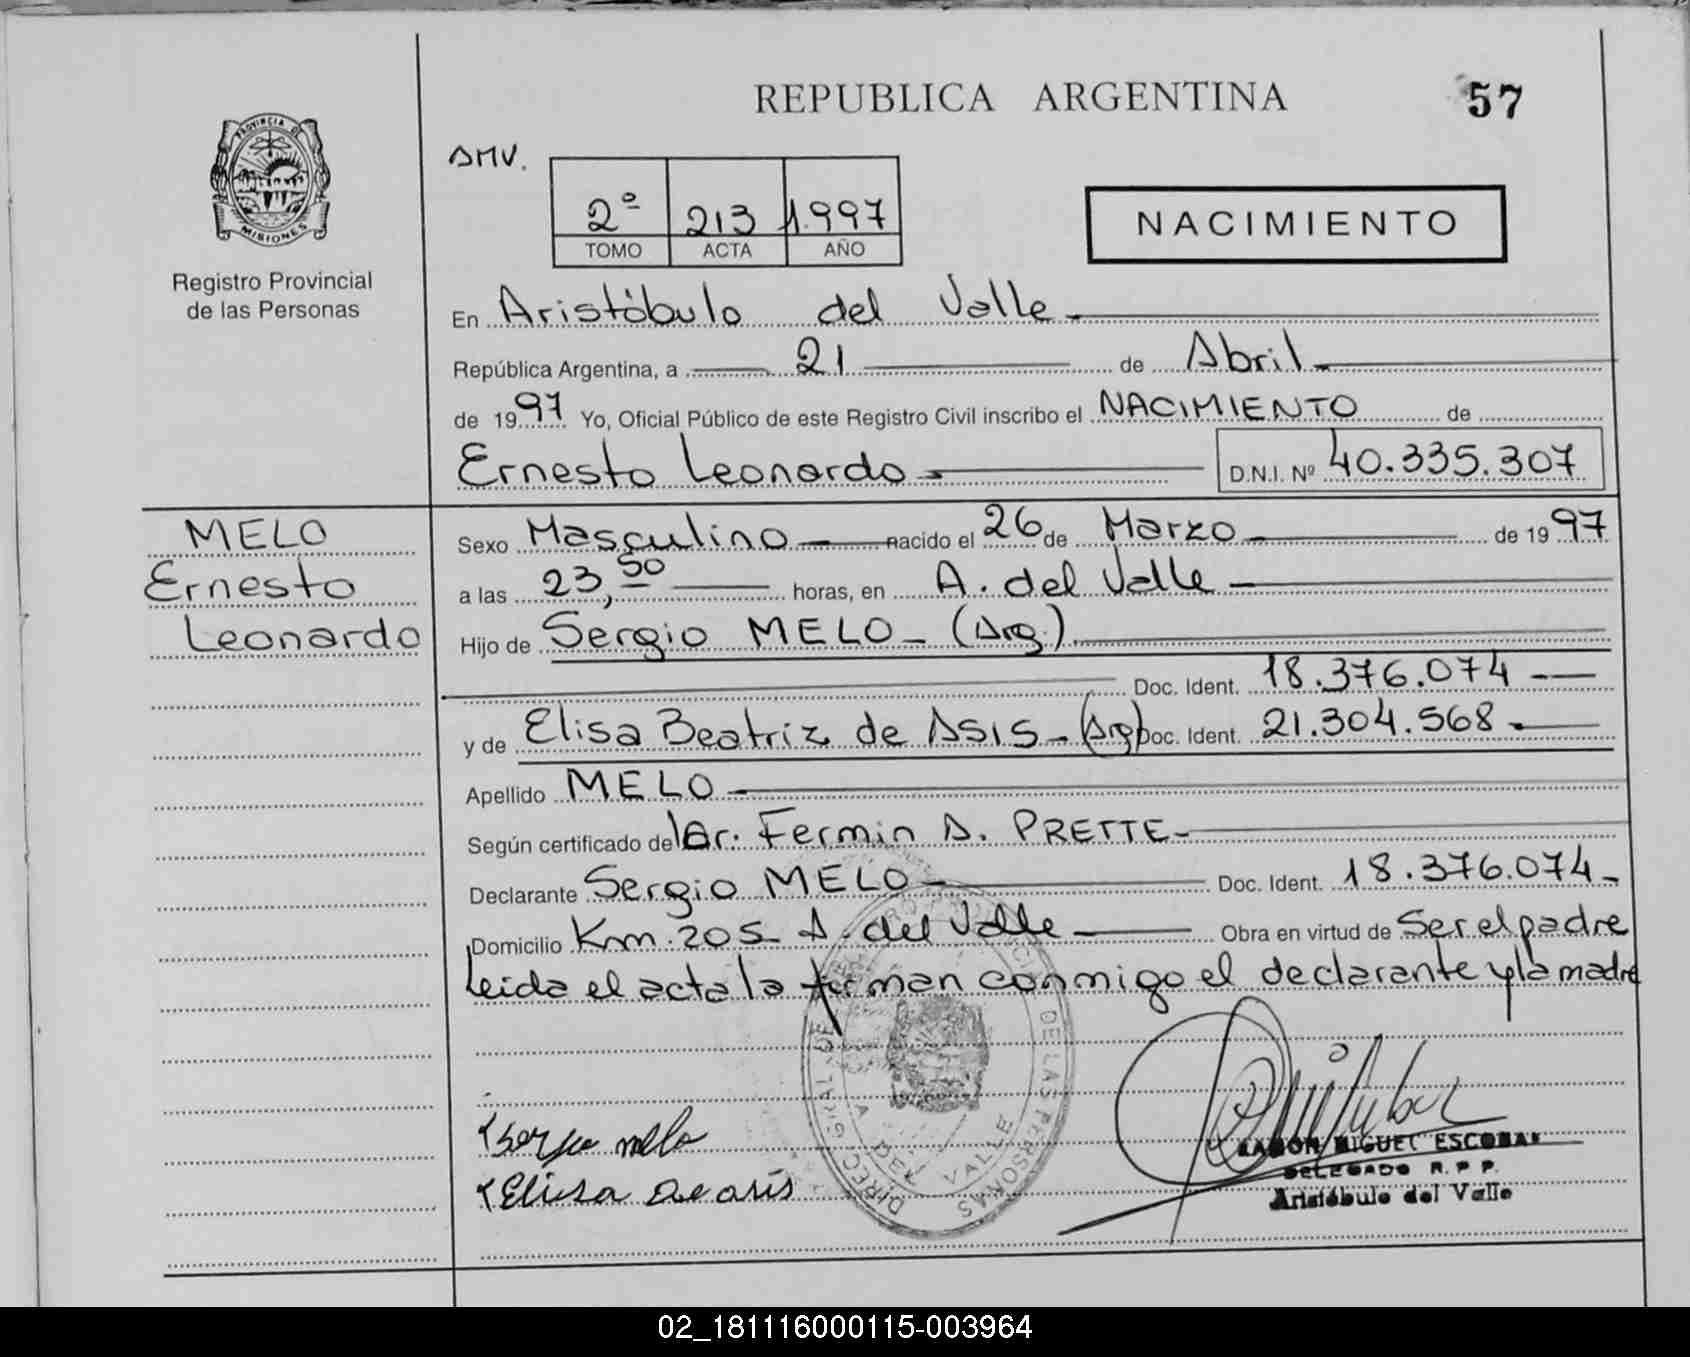 REPUBLICA ARGENTINA
57
PROVINCIA DE
MISIONES
Registro Provincial
de las Personas
AMV.
2º 213 1.997
TOMO ACTA AÑO
NACIMIENTO
En Aristóbulo del Valle
República Argentina, a 21 de Abril
de 1997 Yo, Oficial Público de este Registro Civil inscribo el NACIMIENTO de
Ernesto Leonardo D.N.I. Nº 40.335.307
MELO
Ernesto
Leonardo
Sexo Masculino nacido el 26 de Marzo de 1997
a las 23,50 horas, en A. del Valle
Hijo de Sergio MELO - (Arg.)
Doc. Ident. 18.376.074
y de Elisa Beatriz de ASIS - (Arg) Doc. Ident. 21.304.568
Apellido MELO
Según certificado del Dr. Fermin A. PRETTE
Declarante Sergio MELO Doc. Ident. 18.376.074
Domicilio Km. 205 A. del Valle Obra en virtud de Ser el padre
Leida el acta la firman conmigo el declarante y la madre
Sergio melo
Elisa de asis
DE LAS PERSONAS
A. DEL VALLE
RAMON MIGUEL ESCOBAR
DELEGADO R. P. P.
Aristóbulo del Valle
02_181116000115-003964